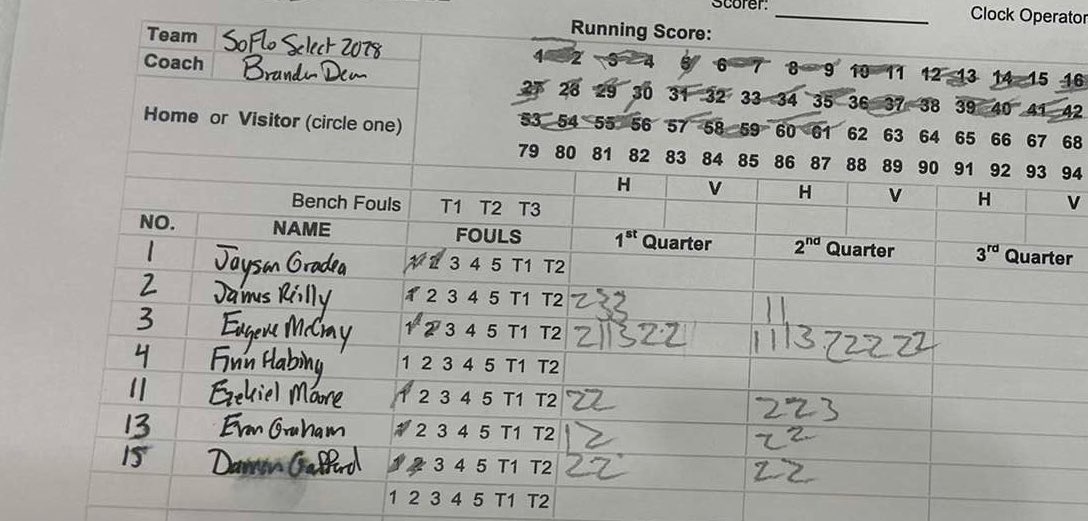 Scorer:
Clock Operator
Team SoFlo Select 2028
Coach Branden Dean
Home or Visitor (circle one)
Running Score:
1 2 3 4 5 6 7 8 9 10 11 12 13 14 15 16
27 28 29 30 31 32 33 34 35 36 37 38 39 40 41 42
53 54 55 56 57 58 59 60 61 62 63 64 65 66 67 68
79 80 81 82 83 84 85 86 87 88 89 90 91 92 93 94
H V H V H V
Bench Fouls T1 T2 T3
NO. NAME FOULS 1st Quarter 2nd Quarter 3rd Quarter
1 Jaysen 1 2 3 4 5 T1 T2
2 James Reilly 1 2 3 4 5 T1 T2 233 11
3 Eugene McCray 1 2 3 4 5 T1 T2 211322 111322222
4 Finn Habing 1 2 3 4 5 T1 T2
11 Ezekiel Moore 1 2 3 4 5 T1 T2 22 223
13 Evan Graham 1 2 3 4 5 T1 T2 12 22
15 Gafford 1 2 3 4 5 T1 T2 22 22
1 2 3 4 5 T1 T2